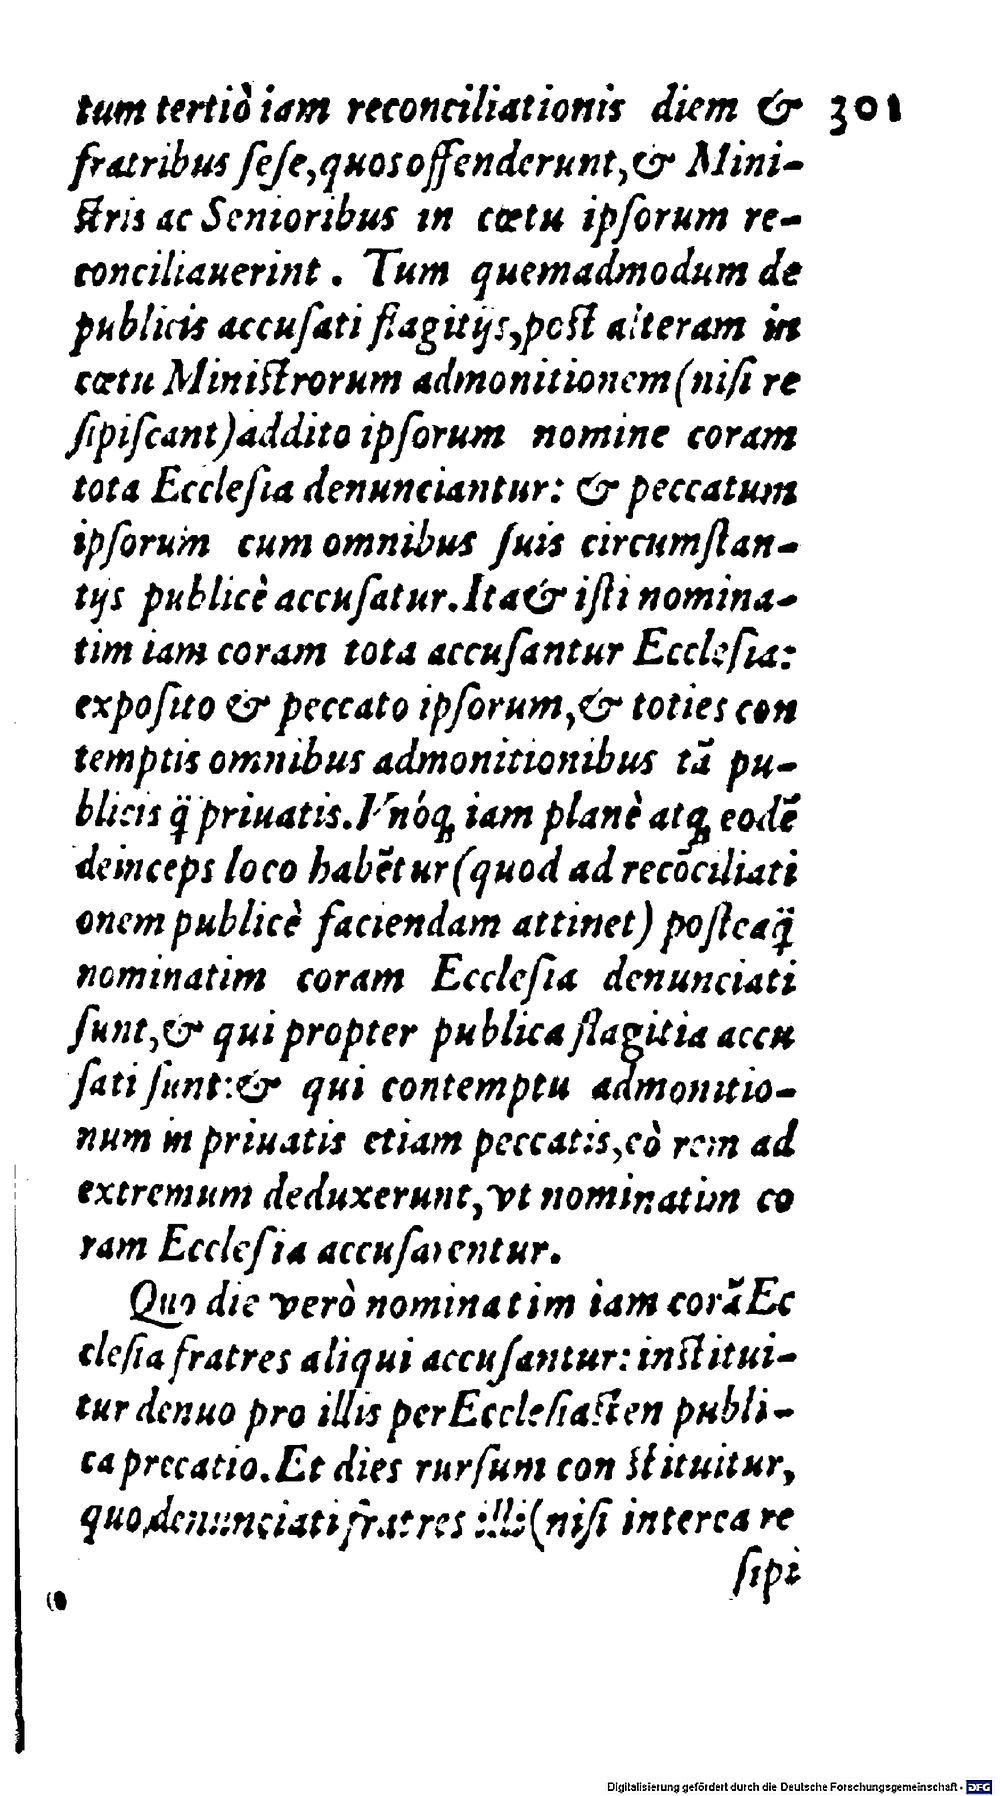 tum tertiò iam reconciliationis diem & 301
fratribus ſeſe, quos offenderunt, & Mini-
ſtris ac Senioribus in cœtu ipſorum re-
conciliauerint. Tum quemadmodum de
publicis accuſati flagitijs, poſt alteram in
cœtu Miniſtrorum admonitionem (niſi re
ſipiſcant) addito ipſorum nomine coram
tota Eccleſia denunciantur: & peccatum
ipſorum cum omnibus ſuis circumſtan-
tijs publicè accuſatur. Ita & iſti nomina-
tim iam coram tota accuſantur Eccleſia:
expoſito & peccato ipſorum, & toties con
temptis omnibus admonitionibus tã pu-
blicis q̃ priuatis. Vnóq; iam planè atq; eodẽ
deinceps loco habẽtur (quod ad recõciliati
onem publicè faciendam attinet) poſteaq̃
nominatim coram Eccleſia denunciati
ſunt, & qui propter publica flagitia accu
ſati ſunt: & qui contemptu admonitio-
num in priuatis etiam peccatis, eò rem ad
extremum deduxerunt, vt nominatim co
ram Eccleſia accuſarentur.
Quo die verò nominatim iam corã Ec
cleſia fratres aliqui accuſantur: inſtitui-
tur denuo pro illis per Eccleſiaſten publi-
ca precatio. Et dies rurſum conſtituitur,
quo, denunciati fratres illi (niſi interea re
ſipi
Digitalisierung gefördert durch die Deutsche Forschungsgemeinschaft - DFG